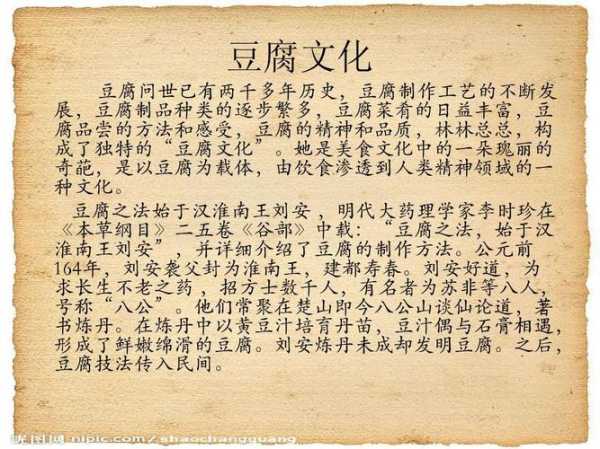 豆腐文化
豆腐问世已有两千多年历史，豆腐制作工艺的不断发
展，豆腐制品种类的逐步繁多，豆腐菜肴的日益丰富，豆
腐品尝的方法和感受，豆腐的精神和品质，林林总总，构
成了独特的“豆腐文化”。她是美食文化中的一朵瑰丽的
奇葩，是以豆腐为载体，由饮食渗透到人类精神领域的一
种文化。
豆腐之法始于汉淮南王刘安，明代大药理学家李时珍在
《本草纲目》二五卷《谷部》中载：“豆腐之法，始于汉
淮南王刘安”，并详细介绍了豆腐的制作方法。公元前
164年，刘安袭父封为淮南王，建都寿春。刘安好道，为
求长生不老之药，招方士数千人，有名者为苏非等八人，
号称“八公”。他们常聚在楚山即今八公山谈仙论道，著
书炼丹。在炼丹中以黄豆汁培育丹苗，豆汁偶与石膏相遇，
形成了鲜嫩绵滑的豆腐。刘安炼丹未成却发明豆腐。之后，
豆腐技法传入民间。
昵图网 nipic.com/shaochangguang